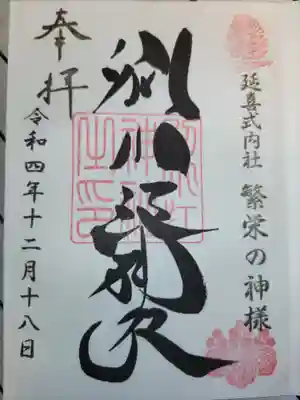 延喜式内社 繁栄の神様
別小江神社
奉拝
令和四年十二月十八日